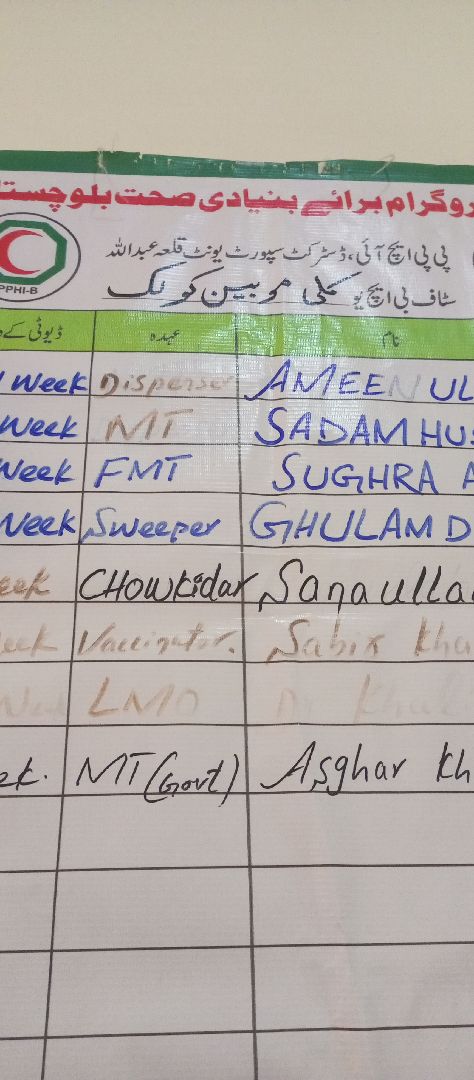 روگرام برائے بنیادی صحت بلوچستا
پی پی ایچ آئی، ڈسٹرکٹ سپورٹ یونٹ قلعہ عبداللہ
PPHI-B
سٹاف بی ایچ یو کلی موبین کولک
نام عہدہ ڈیوٹی کے
Week Disperser AMEEN UL
Week MT SADAM HUS
Week FMT SUGHRA A
Week Sweeper GHULAM D
eek CHOWKidar Sanaulla
eek Vaccinator. Sabir Kha
LMO Dr Khal
ek. MT (Govt) Asghar Kh